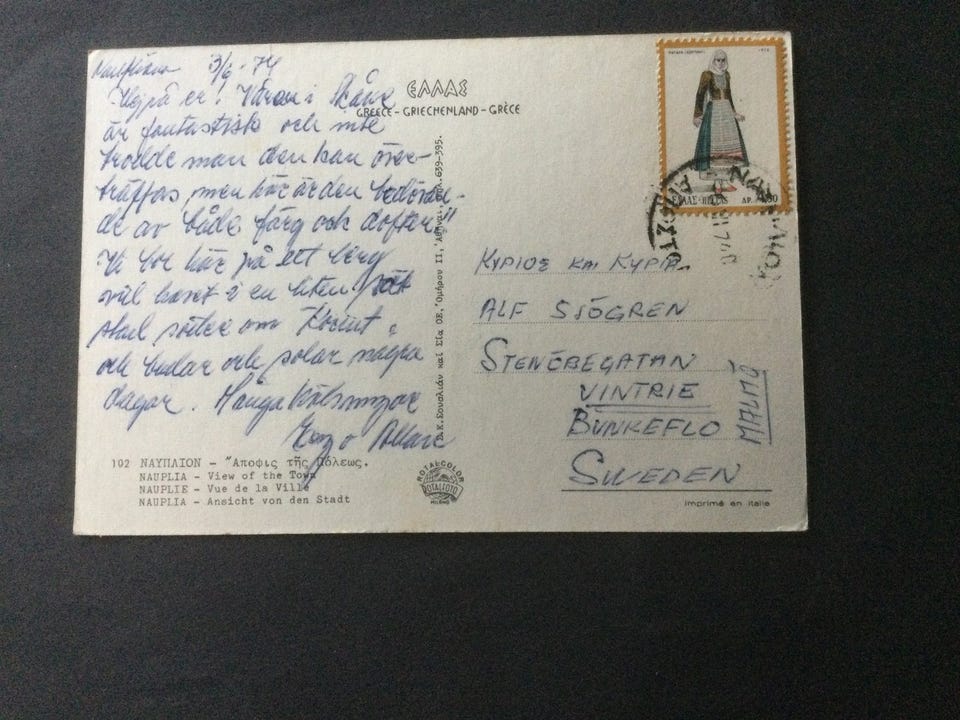 Nauplion 3/6 - 74
Hej på er! Våren i Skåne
är fantastisk och inte
trodde man den kan över-
träffas, men här är den bedövan-
de av både färg och dofter!!
Vi bor här på ett berg
vid havet i en liten
stad söder om Korint,
och badar och solar några
dagar. Många hälsningar
ΕΛΛΑΣ
GREECE - GRIECHENLAND - GRÈCE
102 ΝΑΥΠΛΙΟΝ - "Αποψις τῆς Πόλεως.
NAUPLIA - View of the Town
NAUPLIE - Vue de la Ville
NAUPLIA - Ansicht von den Stadt
ROTALCOLOR
ROTALFOTO
MILANO
ΕΛΛΑΣ-HELLAS ΔΡ.
ΚΥΡΙΟΣ ΚΑΙ ΚΥΡΙΑ
ALF SJÖGREN
STENEBEGATAN
VINTRIE
BUNKEFLO
MALMÖ
SWEDEN
Imprimé en Italie